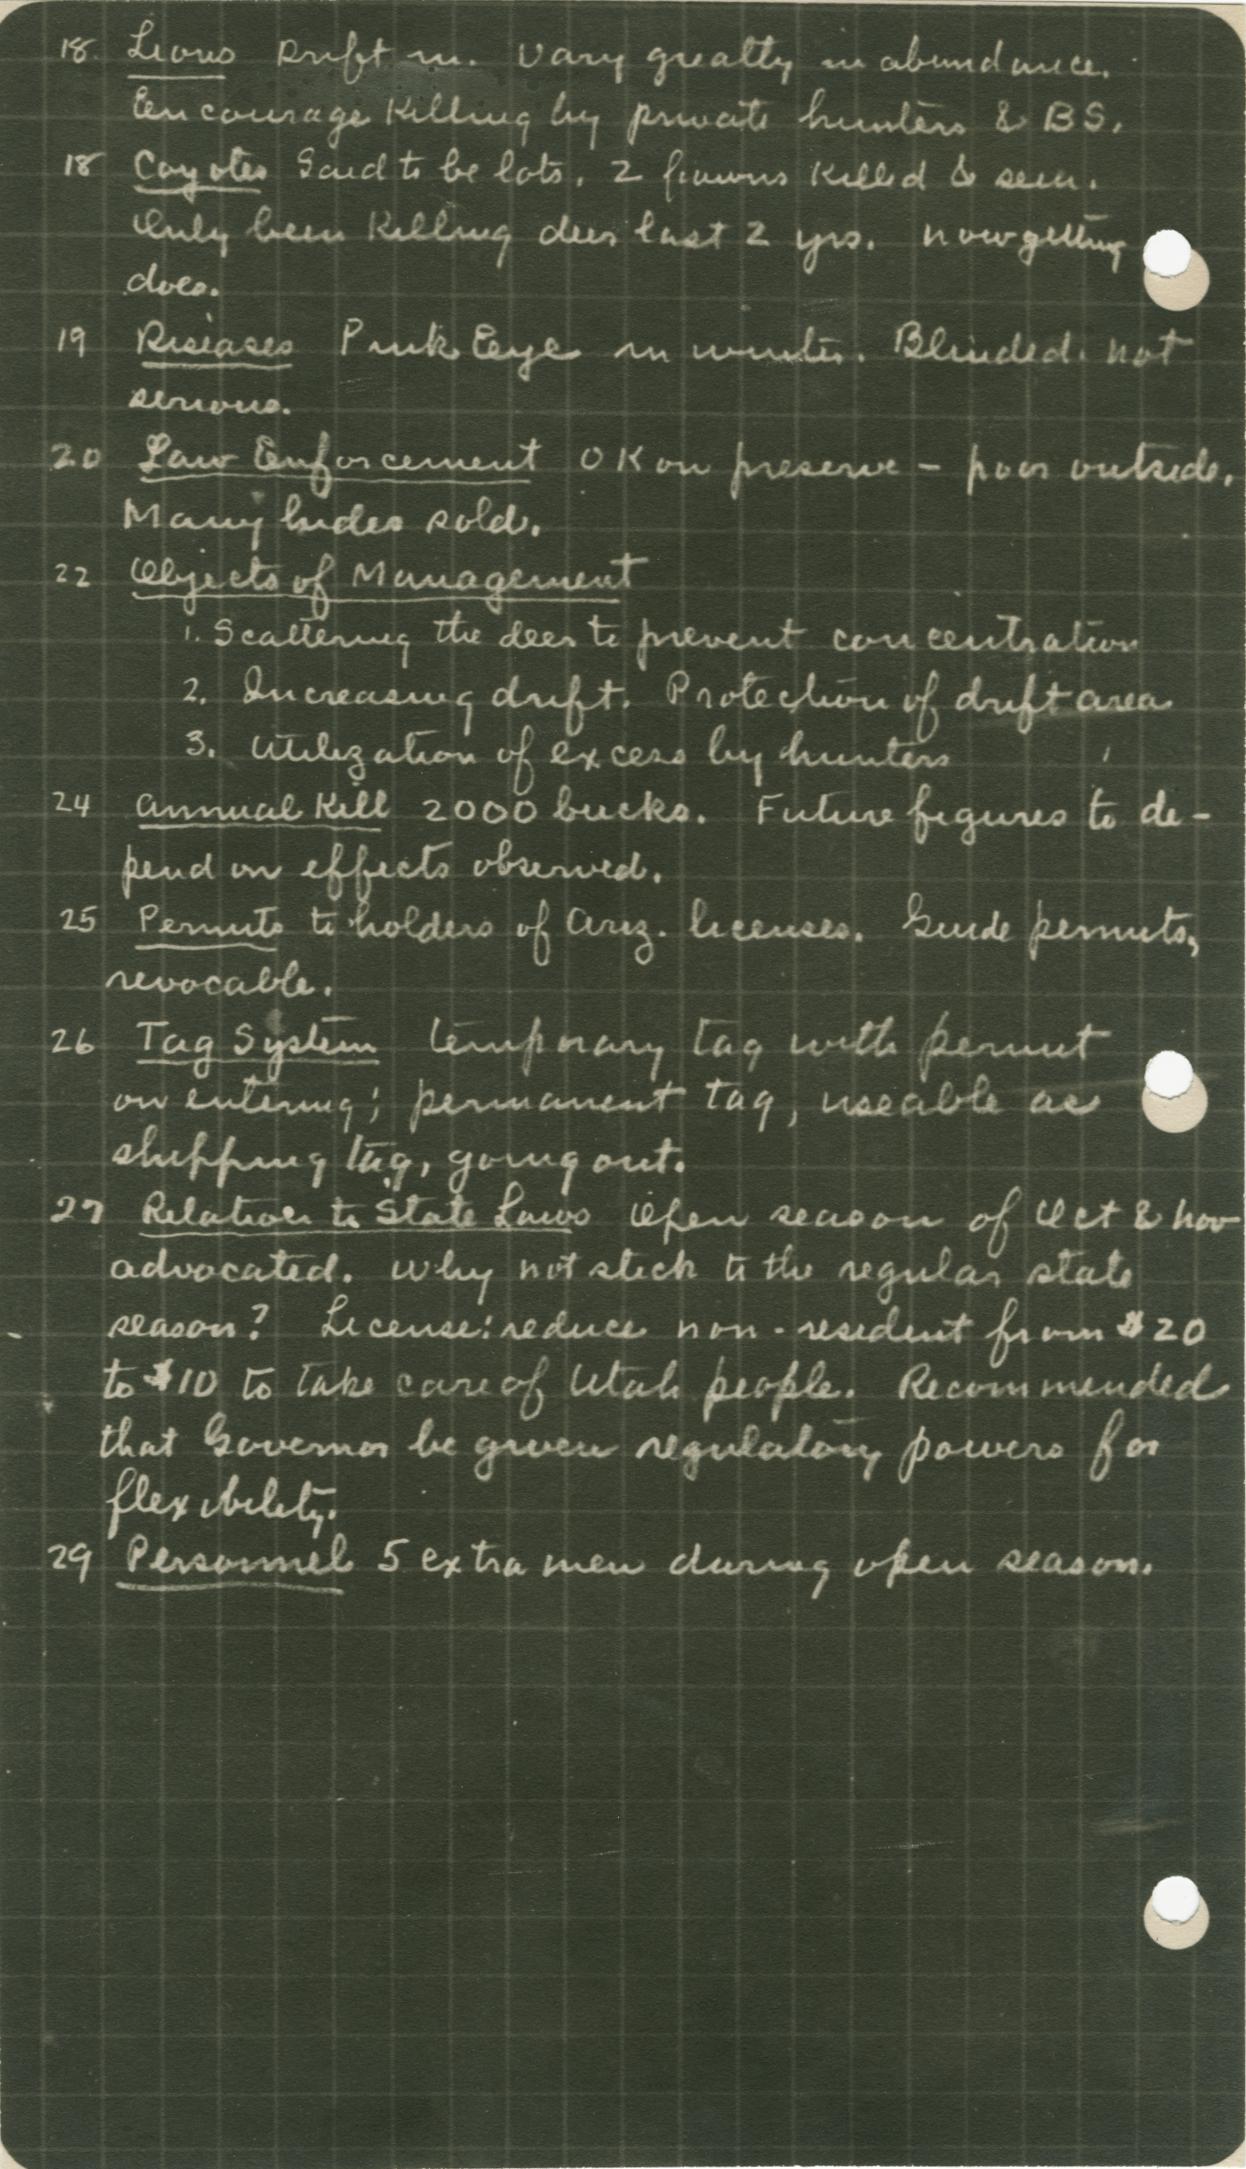 18. Lions Drift in. Vary greatly in abundance.
Encourage killing by private hunters & BS.
18 Coyotes Said to be lots. 2 fawns killed & seen.
Only been killing deer last 2 yrs. Now getting
does.
19 Diseases Pink Eye in winter. Blinded. not
serious.
20 Law Enforcement OK on preserve – poor outside.
Many hides sold.
22 Objects of Management
1. Scattering the deer to prevent concentration
2. Increasing drift. Protection of drift area
3. Utilization of excess by hunters
24 Annual Kill 2000 bucks. Future figures to de-
pend on effects observed.
25 Permits to holders of Ariz. licenses. Guide permits,
revocable.
26 Tag System temporary tag with permit
on entering; permanent tag, useable as
shipping tag, going out.
27 Relation to State Laws Open season of Oct & Nov
advocated. Why not stick to the regular state
season? License: reduce non-resident from $20
to $10 to take care of Utah people. Recommended
that Governor be given regulatory powers for
flexibility.
29 Personnel 5 extra men during open season.